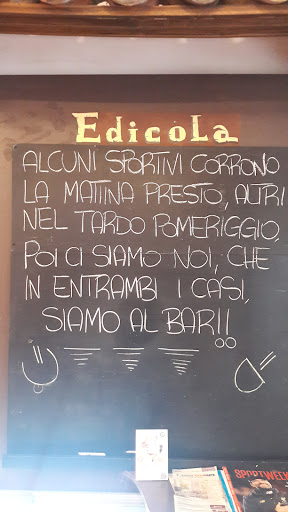 Edicola
ALCUNI SPORTIVI CORRONO
LA MATTINA PRESTO, ALTRI
NEL TARDO POMERIGGIO,
POI CI SIAMO NOI, CHE
IN ENTRAMBI I CASI,
SIAMO AL BAR!!
SPORTWEEK